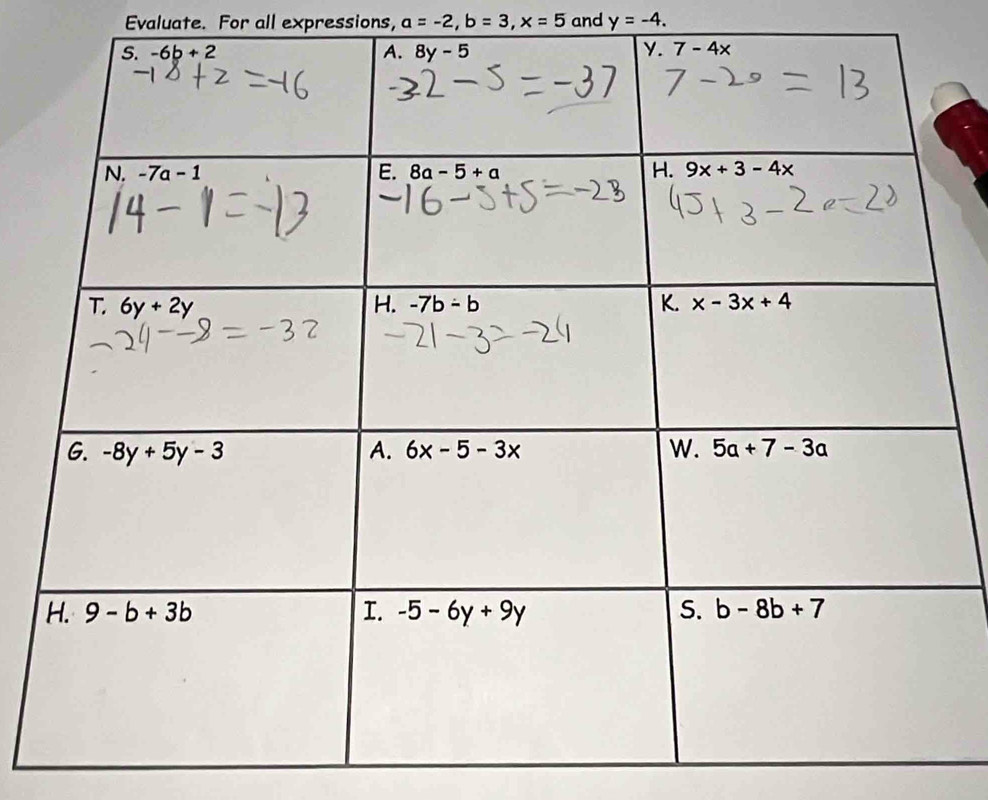 Evaluate. For all expressions, a = -2, b = 3, x = 5 and y = -4.
S. -6b + 2
-18 + 2 = -16
A. 8y - 5
-32 - 5 = -37
Y. 7 - 4x
7 - 20 = 13
N. -7a - 1
14 - 1 = -13
E. 8a - 5 + a
-16 - 5 + 5 = -23
H. 9x + 3 - 4x
45 + 3 - 20 = 28
T. 6y + 2y
-24 - -8 = -32
H. -7b - b
-21 - 3 = -24
K. x - 3x + 4
G. -8y + 5y - 3
A. 6x - 5 - 3x
W. 5a + 7 - 3a
H. 9 - b + 3b
I. -5 - 6y + 9y
S. b - 8b + 7